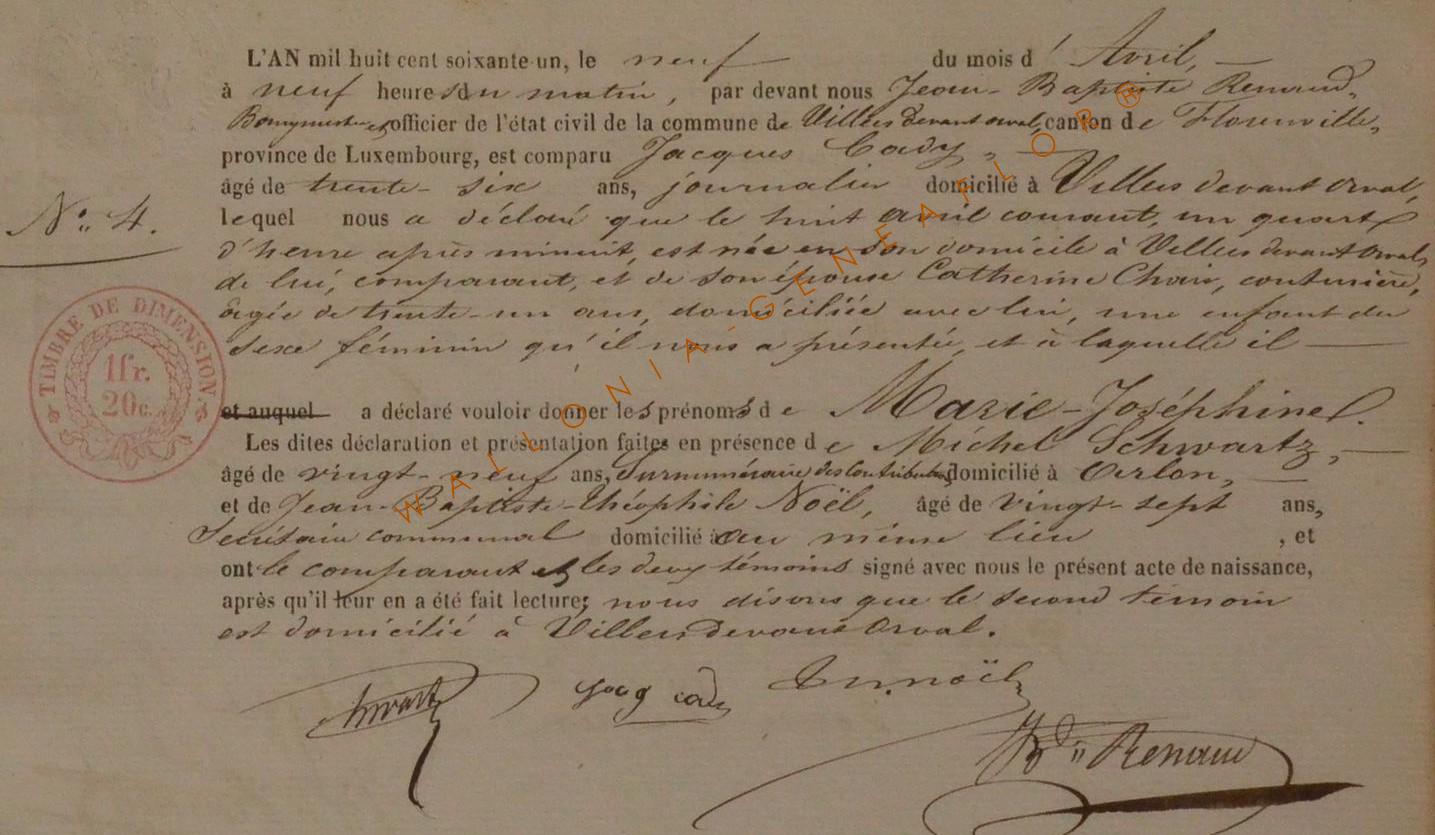 L'AN mil huit cent soixante-un, le neuf du mois d' Avril,
à neuf heures du matin, par devant nous Jean-Baptiste Renaud,
Bourgmestre et officier de l'état civil de la commune de Villers devant orval, canton de Florenville,
province de Luxembourg, est comparu Jacques Cady,
âgé de trente-six ans, journalier domicilié à Villers devant orval,
N° 4.
lequel nous a déclaré que le huit avril courant, un quart
d'heure après minuit, est née en son domicile à Villers devant Orval,
de lui, comparant, et de son épouse Catherine Choix, couturière,
âgée de trente-un ans, domiciliée avec lui, une enfant du
sexe féminin qu'il nous a présentée, et à laquelle il
TIMBRE DE DIMENSION.
1fr.
20c.
et auquel a déclaré vouloir donner les prénoms de Marie-Joséphine.
Les dites déclaration et présentation faites en présence de Michel Schwartz,
âgé de vingt-neuf ans, Surnuméraire des Contributions, domicilié à Arlon,
et de Jean-Baptiste-théophile Noël, âgé de vingt-sept ans,
Secrétaire communal domicilié au même lieu, et
ont le comparant et les deux témoins signé avec nous le présent acte de naissance,
après qu'il leur en a été fait lecture; nous disons que le second témoin
est domicilié à Villers devant Orval.
noël
Renaud
WALLONIA-GENEAFLOR®